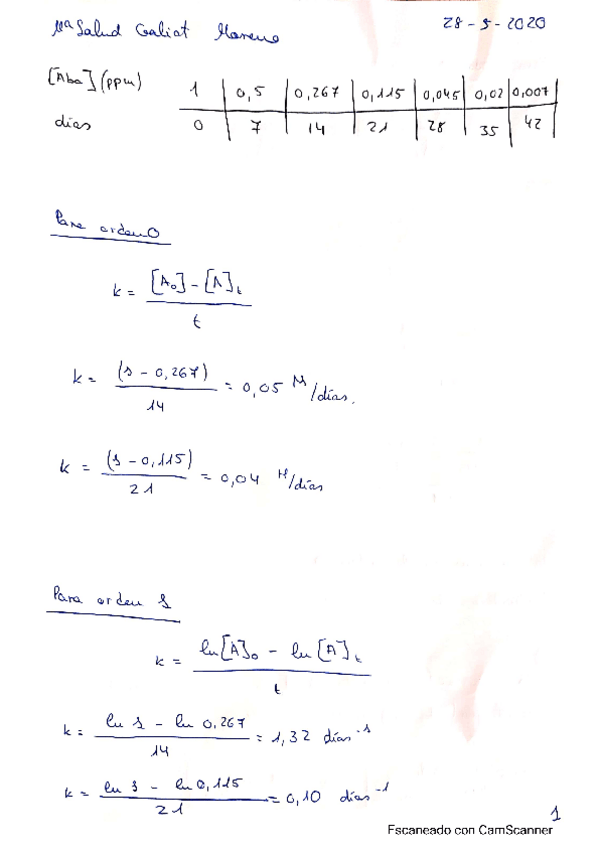 Mª Salud Galiat Moreno 28-5-2020
[Aba] (ppm) 1 0,5 0,267 0,115 0,045 0,02 0,007
días 0 7 14 21 28 35 42
Para orden 0
k = [A₀] - [A]ₜ / t
k = (1 - 0,267) / 14 = 0,05 M/días.
k = (1 - 0,115) / 21 = 0,04 M/días
Para orden 1
k = ln[A]₀ - ln[A]ₜ / t
k = ln 1 - ln 0,267 / 14 = 1,32 días⁻¹
k = ln 1 - ln 0,115 / 21 = 0,10 días⁻¹
1
Escaneado con CamScanner